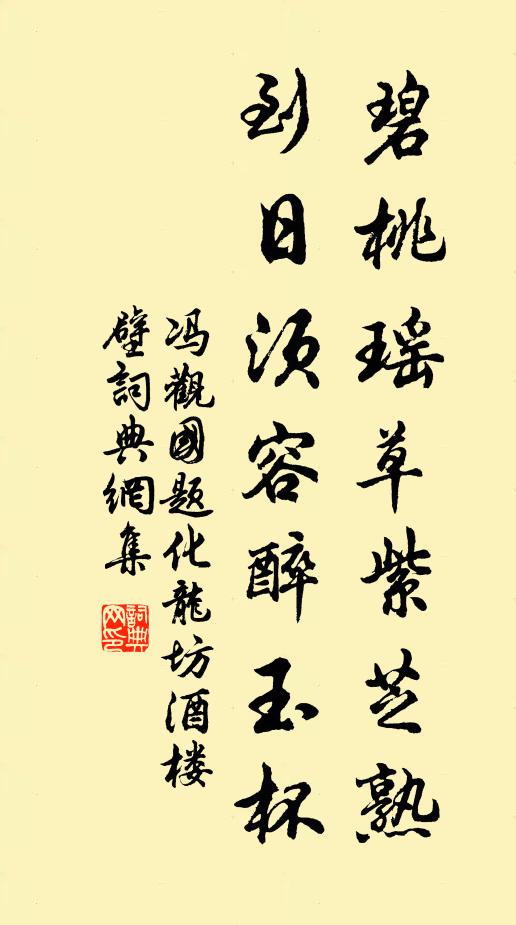 碧桃瑶草紫芝熟
到日须容醉玉杯
冯觀國题化龍坊酒楼
壁詞典網集
詞典网印